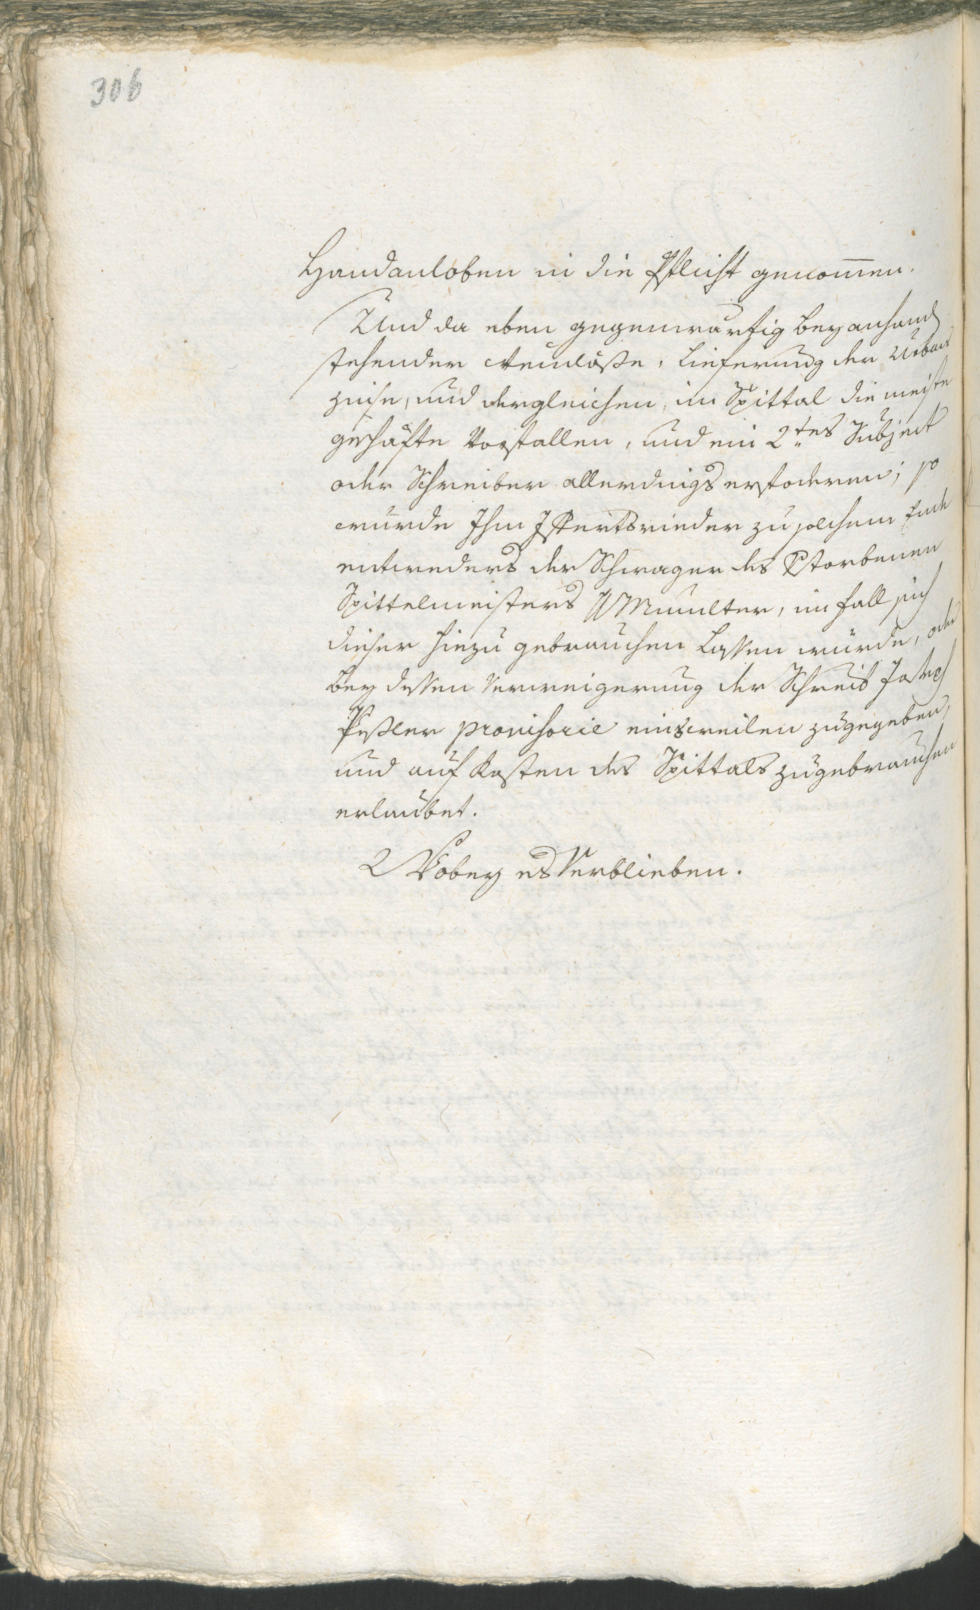 306
Handanloben in die Pflicht genom̅en.
Und da eben gegenwärtig bey anhand
stehender Weinlöße, Lieferung der Urbar
zinse, und dergleichen, im Spittal die meiste
geschäfte Vorfallen, und ein 2tes Subject
oder Schreiber allerdings erfoderen; so
wurde Ihm zu solchem Ende
entweders der Schwager des Verstorbenen
Spittelmeisters, im fall sich
dieser hiezu gebrauchen Lassen würde, oder
bey dessen Verweigerung der Joseph
provisorie einsweilen zugegeben,
und auf Kosten des Spittals zugebrauchen
erlaubet.
Wobey es Verblieben.